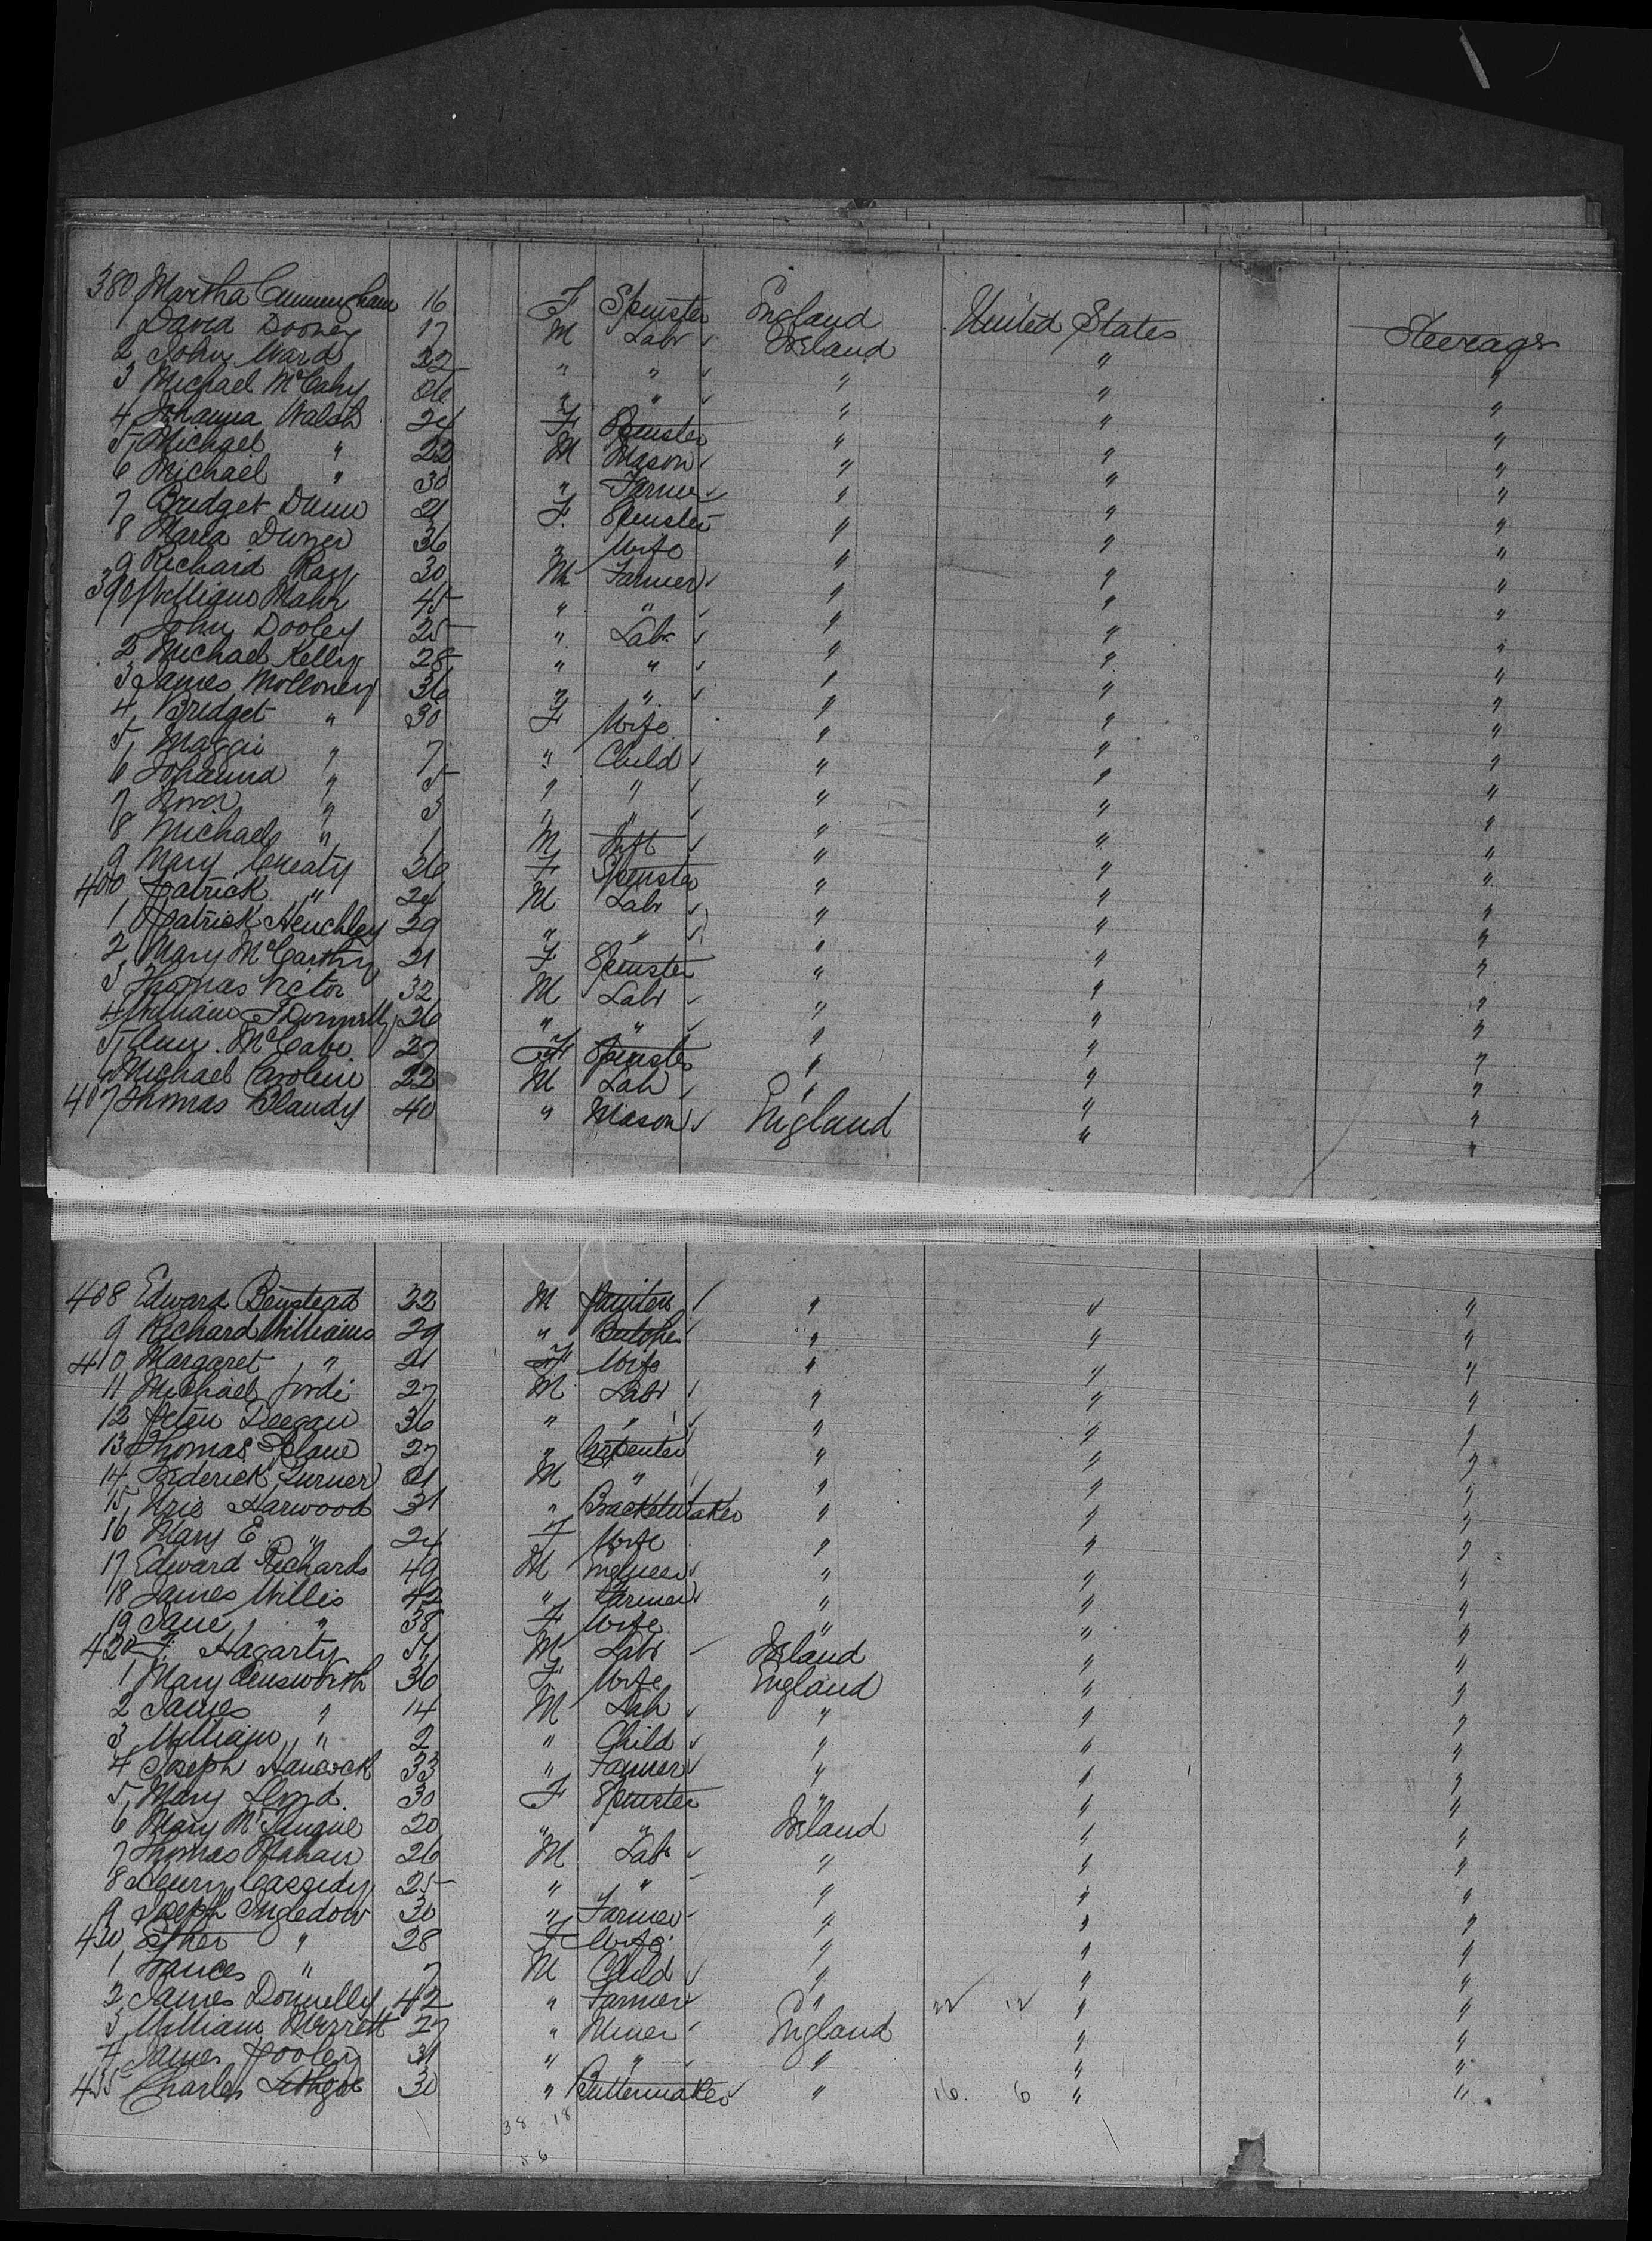 380 Martha Cunningham 16 F Spinster England United States Steerage
1 David Dooney 17 M Labr Ireland " "
2 John Ward 22 " " " " "
3 Michael McCahy 26 " " " " "
4 Johanna Walsh 24 F Spinster " " "
5 Michael " 22 M Mason " " "
6 Michael " 30 " Farmer " " "
7 Bridget Dunn 21 F. Spinster " " "
8 Maria Dwyer 36 " Wife " " "
9 Richard Ray 30 M Farmer " " "
390 William Mahr 45 " " " " "
John Dooley 25 " Labr " " "
2 Michael Kelly 28 " " " " "
3 James Molloney 36 " " " " "
4 Bridget " 30 F Wife " " "
5 Maggie " 7 " Child " " "
6 Johanna " 5 " " " " "
7 Nora " 3 " " " " "
8 Michael " 1 M Inft " " "
9 Mary 26 F Spinster " " "
400 Patrick " 24 M Labr " " "
1 Patrick Henchley 29 " " " " "
2 Mary McCarthy 21 F Spinster " " "
3 Thomas Victor 32 M Labr " " "
4 William 26 " " " " "
5 Ann McCabe 27 F Spinster " " "
6 Michael 22 M Lab " " "
407 Thomas Blandy 40 " Mason England " "
408 Edward Benstead 32 M Painter " " "
9 Richard Williams 29 " Butcher " " "
410 Margaret " 21 F Wife " " "
11 Michael 27 M Labr " " "
12 Peter Deegan 36 " " " " "
13 Thomas 27 " Carpenter " " "
14 Frederick Turner 21 M " " " "
15 Harwood 31 " " " "
16 Mary E. " 24 F Wife " " "
17 Edward Richards 49 M Engineer " " "
18 James Willis 42 " Farmer " " "
19 Jane " 38 F Wife " " "
420 Hagarty 51 M Labr Ireland " "
1 Mary Ainsworth 36 F Wife England " "
2 James " 14 M Lab " " "
3 William " 2 " Child " " "
4 Joseph Hancock 33 " Farmer " " "
5 Mary Lloyd 30 F Spinster " " "
6 Mary 20 " " Ireland " "
7 Thomas Mahan 26 M Labr " " "
8 Henry Cassidy 25 " " " " "
9 Joseph Ingledow 30 " Farmer " " "
430 Esther " 28 F Wife " " "
1 Frances " 7 M Child " " "
2 James Donnelly 42 " Farmer " " "
3 William Merrett 27 " Miner England " "
4 James Pooley 31 " " " " "
435 Charles Lithgoe 30 " Buttermaker " 16. 6 " "
38 18